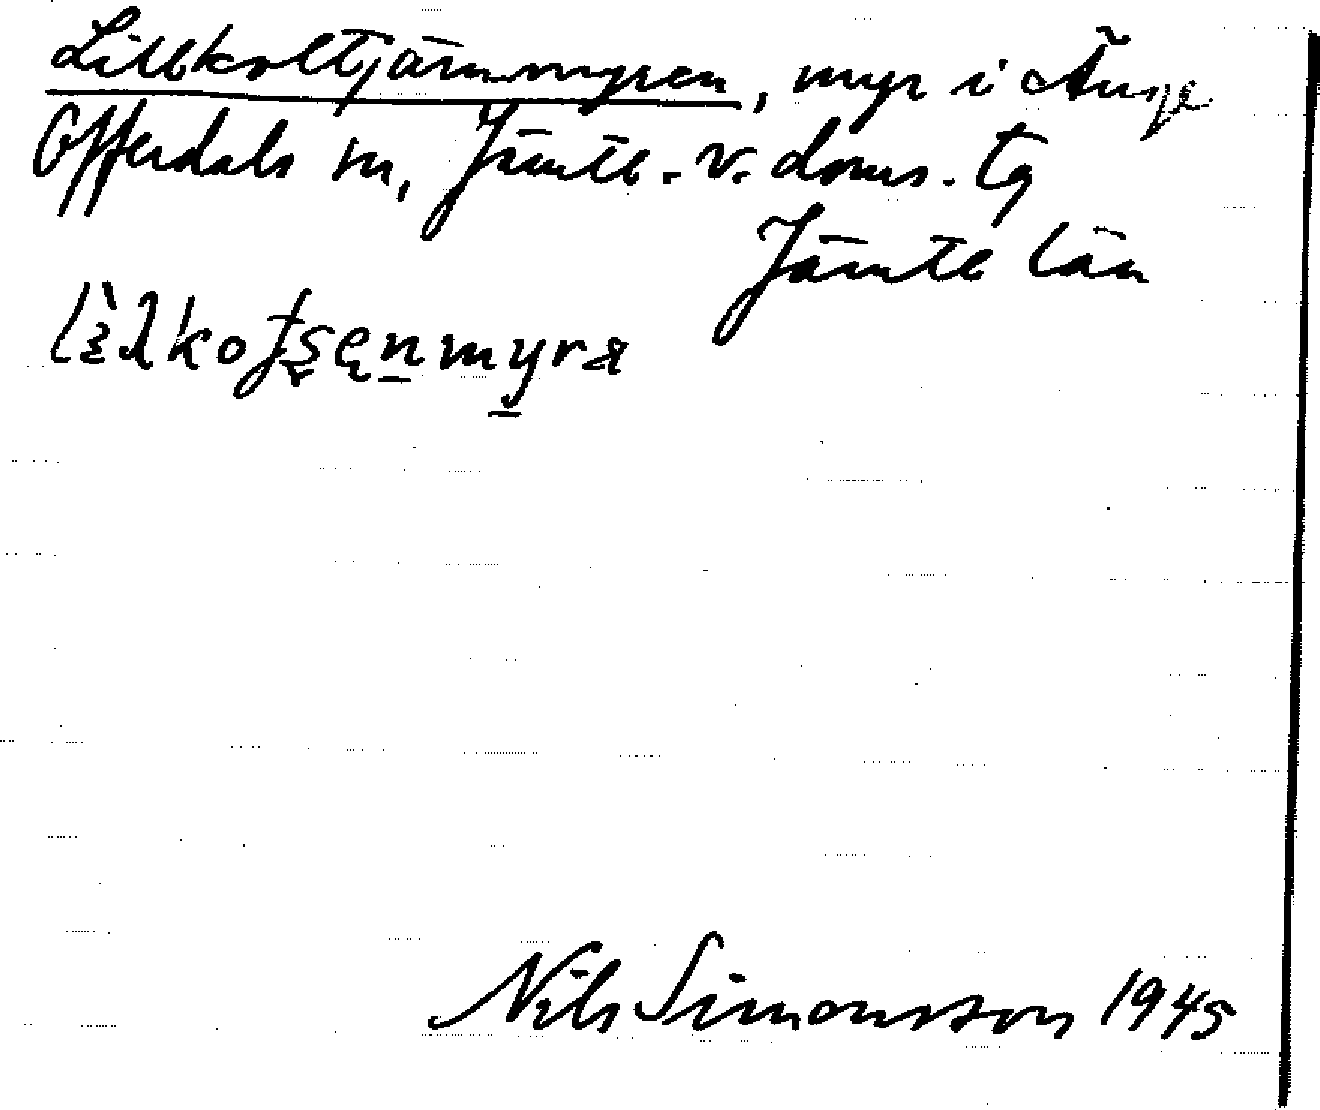 Lillkoltjärnmyren, myr i Änge
Offerdals sn, Jämtl. v. doms. tg
Jämtl län
Nils Simonsson 1945